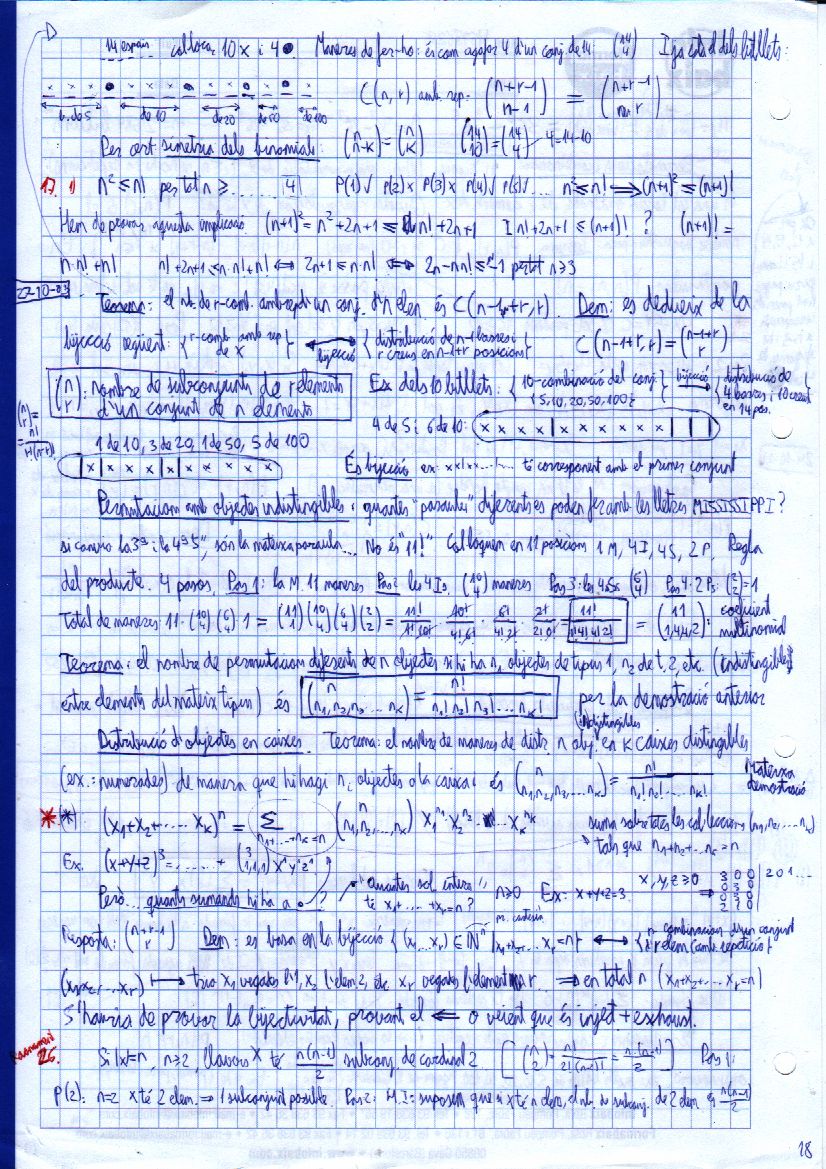 14 espais col·locar 10 x i 4 ● Maneres de fer-ho: és com agafar 4 d'un conj. de 14: (14 4) I ja està el dels bitllets:
b. de 5 de 10 de 20 de 50 de 100 C(n, r) amb rep: (n+r-1 n-1) = (n+r-1 r)
Per cert simetria dels binomials: (n n-k) = (n k) (14 10) = (14 4) 4=14-10
17. 1) n² ≤ n! per tot n ≥ ...... 4 P(1)√ P(2)x P(3)x P(4)√ P(5)√... n² ≤ n! ⟹ (n+1)² ≤ (n+1)!
Hem de provar aquesta implicació (n+1)² = n²+2n+1 ≤ n!+2n+1 I n!+2n+1 ≤ (n+1)! ? (n+1)! =
n·n!+n! n!+2n+1 ≤ n·n!+n! ⟺ 2n+1 ≤ n·n! ⟺ 2n-n·n! ≤ -1 per tot n≥3
22-10-03
Teorema: el nb. de r-comb. amb rep. d'un conj. d'n elem. és C(n-1+r, r). Dem: es dedueix de la
bijecció següent: {r-comb. amb rep de X} ⟷ bijecció {distribució de n-1 barres i r creus en n-1+r posicions} C(n-1+r, r) = (n-1+r r)
(n r): nombre de subconjunts de r elements d'un conjunt de n elements
(n r) = n! / r!(n-r)!
Ex dels 10 bitllets: {10-combinació del conj. {5,10,20,50,100}} bijecció {distribució de 4 barres i 10 creus en 14 pos.
4 de 5 i 6 de 10: x x x x | x x x x x x | | |
1 de 10, 3 de 20, 1 de 50, 5 de 100
| x | x x x | x | x x x x x
És bijecció ex: xx|x... té corresponent amb el primer conjunt
Permutacions amb objectes indistingibles: quantes "paraules" diferents es poden fer amb les lletres MISSISSIPPI?
si canvio la 3ª i la 4ª "S", són la mateixa paraula... No és "11!" Col·loquem en 11 posicions 1 M, 4 I, 4 S, 2 P. Regla
del producte. 4 passos. Pas 1: la M. 11 maneres Pas 2 les 4 Is. (10 4) maneres Pas 3: les 4 Ss (6 4) Pas 4: 2 Ps: (2 2) = 1
Total de maneres: 11·(10 4)·(6 4)·1 = (11 1)(10 4)(6 4)(2 2) = 11!/1!10! · 10!/4!6! · 6!/4!2! · 2!/2!0! = 11!/1!4!4!2! = (11 1,4,4,2): coeficient multinomial
Teorema: el nombre de permutacions diferents de n objectes si hi ha n₁ objectes de tipus 1, n₂ de t. 2, etc. (indistingibles
entre elements del mateix tipus) és (n n₁, n₂, n₃ ... nₖ) = n! / n₁! n₂! n₃! ... nₖ! per la demostració anterior
Distribució d'objectes en caixes. Teorema: el nombre de maneres de distr. n obj. (indistingibles) en k caixes distingibles
(ex.: numerades) de manera que hi hagi nᵢ objectes a la caixa i és (n n₁, n₂, n₃, ... nₖ) = n! / n₁! n₂! ... nₖ! Mateixa demostració
* (*) (x₁+x₂+.....xₖ)ⁿ = Σ n₁+...+nₖ=n (n n₁, n₂, ..., nₖ) x₁ⁿ¹ x₂ⁿ² ... xₖⁿᵏ suma sobre totes les col·leccions (n₁, n₂, ... nₖ)
tals que n₁+n₂+...nₖ=n
Ex. (x+y+z)³ = ......+ (3 1,1,1) x¹y¹z¹
Però... quants sumands hi ha a "Quantes sol. enteres" té x₁+...+xᵣ=n? n≥0 Ex: x+y+z=3 x,y,z ≥0 ⟹ 3 0 0 | 2 0 1 ...
0 3 0
0 0 3
2 1 0
Resposta: (n+r-1 r) Dem: es basa en la bijecció {(x₁...xᵣ) ∈ ℕⁿ | x₁+x₂...xᵣ=n} ⟷ {n combinacions d'un conjunt d'r elem (amb repetició)}
(x₁, x₂, ... xᵣ) ⟼ trio x₁ vegades l'1, x₂ l'elem 2, etc. xᵣ vegades l'element r. ⟹ en total n (x₁+x₂+...xᵣ=n)
S'hauria de provar la bijectivitat, provant el ⟸ o veient que és injet + exhaust.
26. Si |x|=n, n≥2, llavors X té n(n-1)/2 subconj. de cardinal 2. [(n 2) = n!/2!(n-2)! = n·(n-1)/2] Pas 1:
P(2): n=2 X té 2 elem. ⟹ 1 subconjunt possible. Pas 2: H.I: suposem que si X té n elem, el nb. de subconj. de 2 elem és n(n-1)/2
18